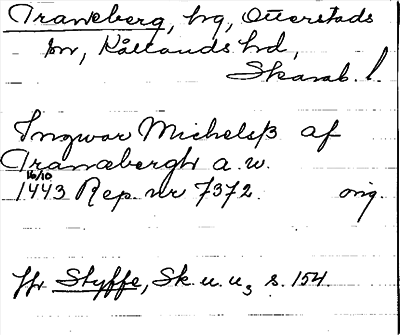 Traneberg, hg, Otterstads
sn, Kållands hd,
Skarab. l.
Ingwar Michelsß af
Tranæbergh a. w.
16/10
1443 Rep. nr 7372. orig.
Jfr Styffe, Sk. u. u., s. 154.